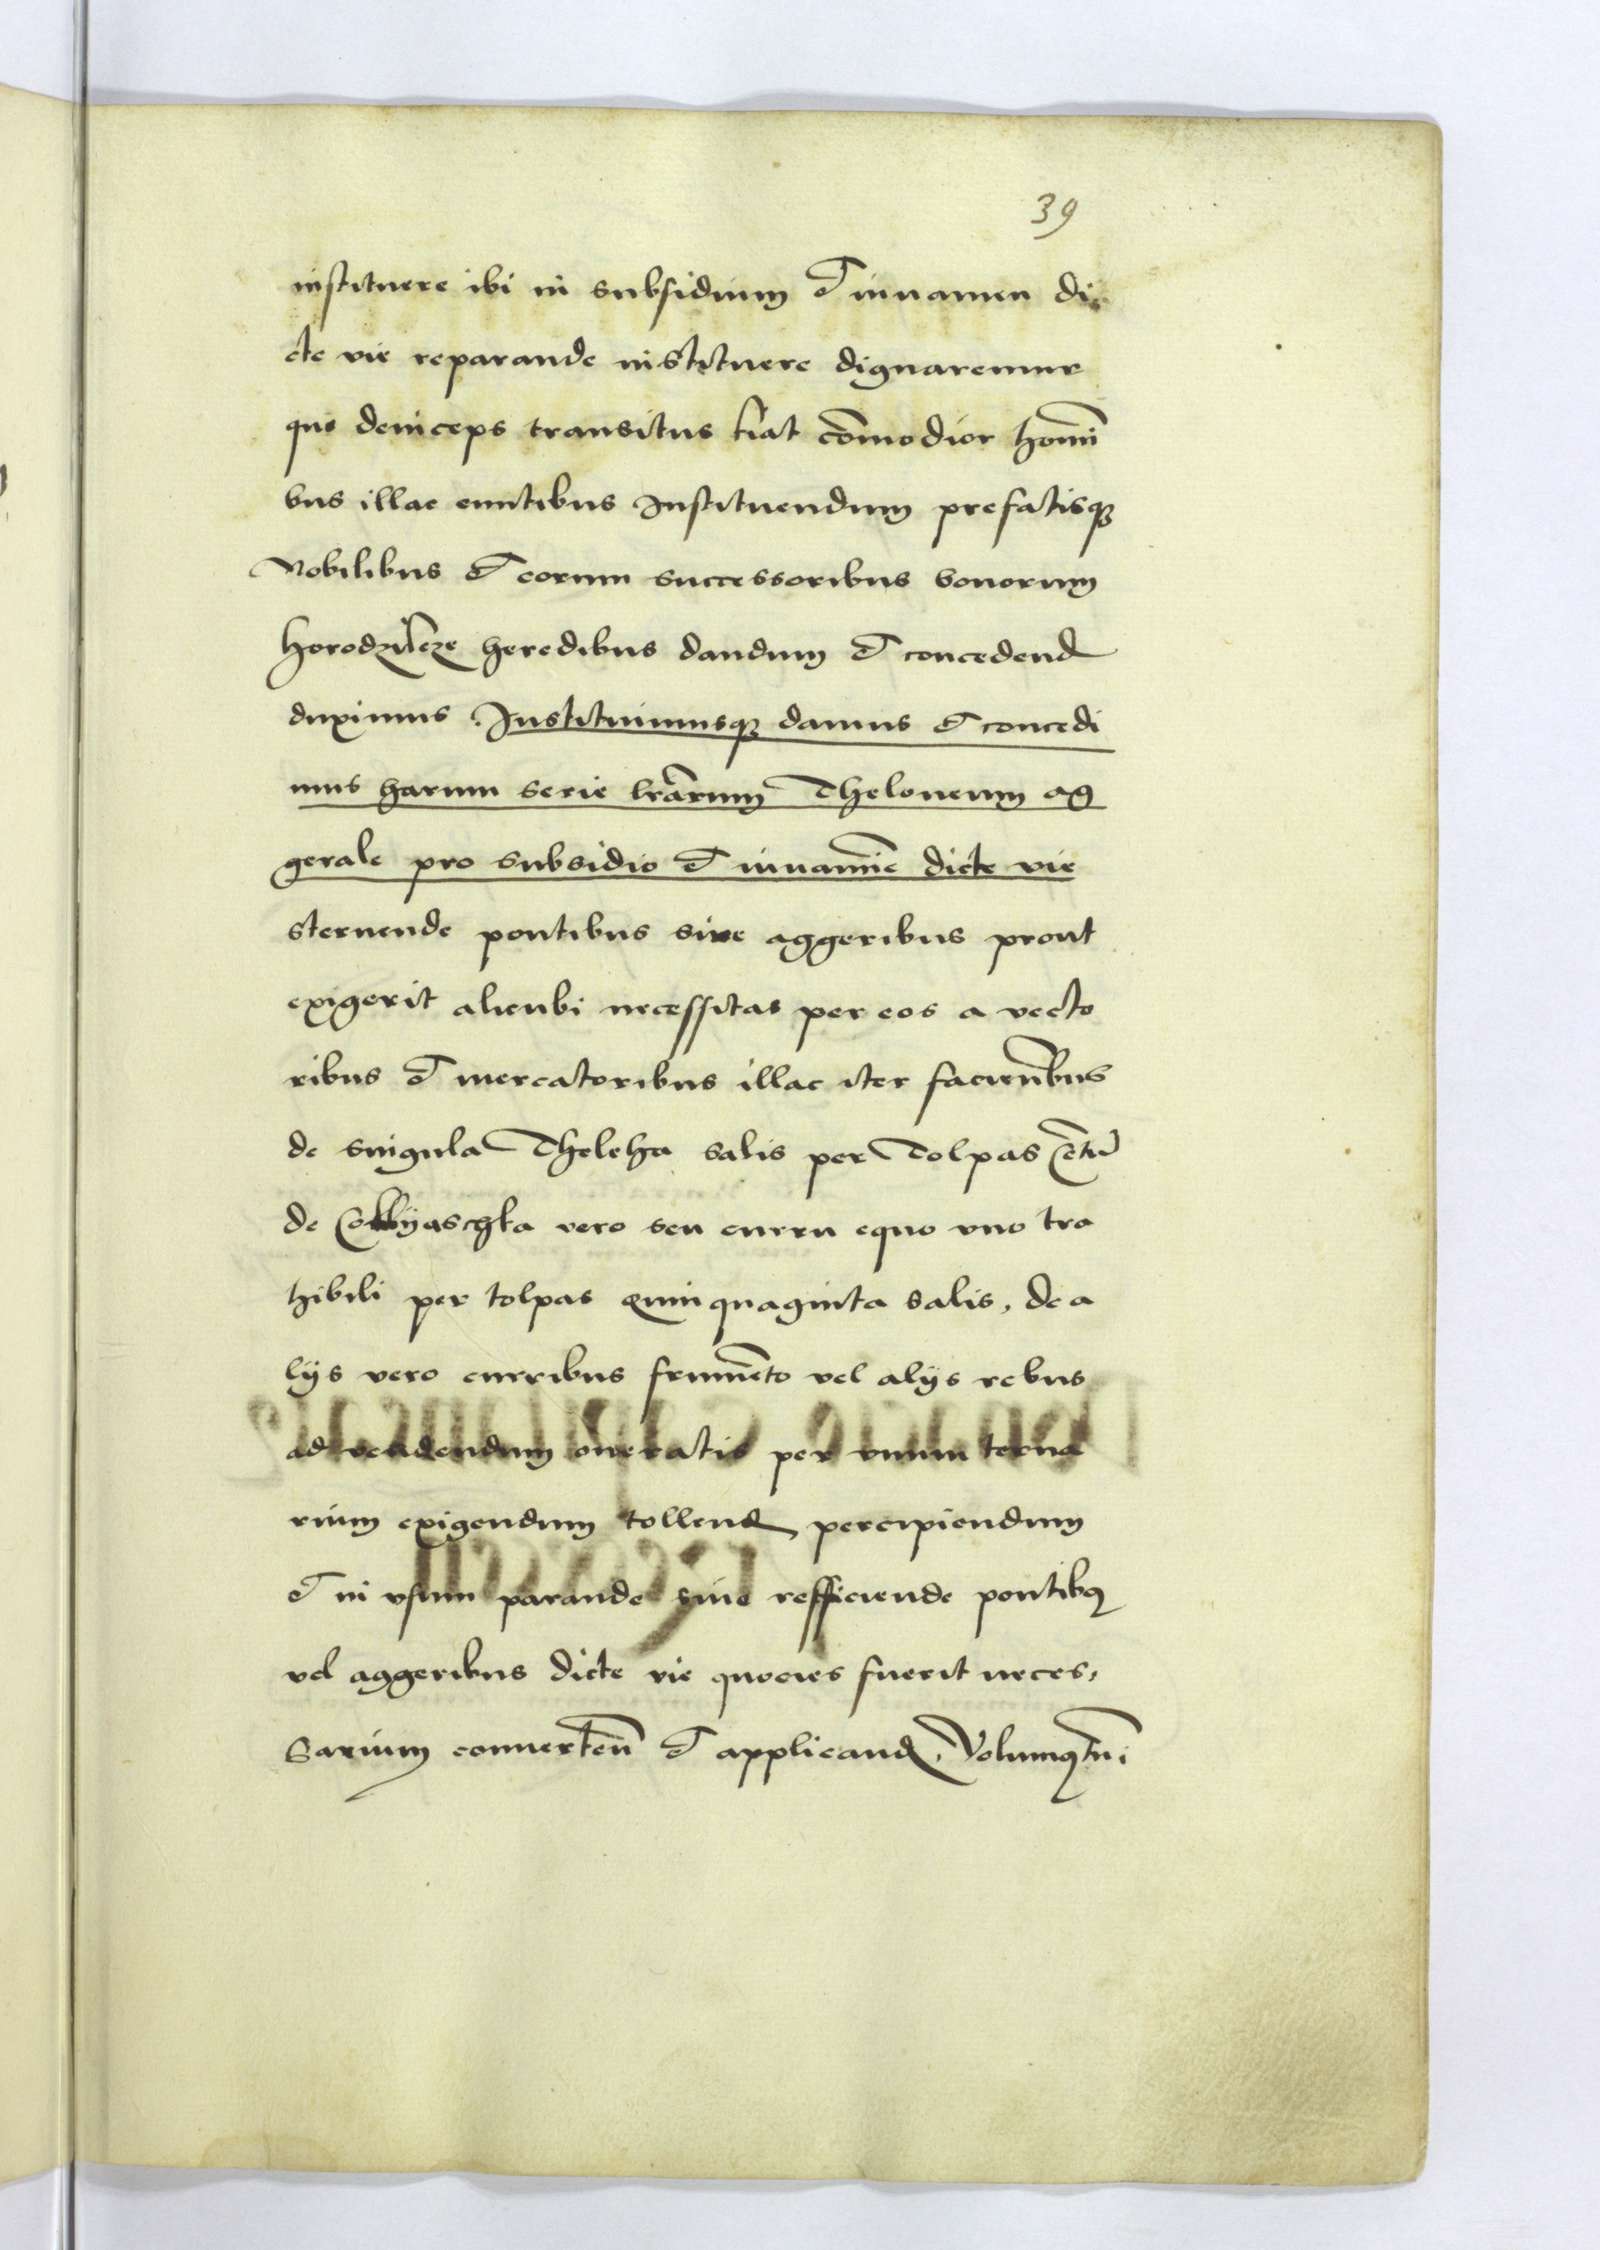 39
instituere ibi in subsidium et iuuamen di
cte vie reparande instituere dignaremur
quo deinceps transitus fiat cōmodior homī
bus illac euntibus Instituendum prefatisqꝫ
Nobilibus et eorum successoribus bonorum
heredibus dandum et concedend
duximus Instituimusqꝫ damus et concedi
mus harum serie lrārum Theloneum ag
gerale pro subsidio et iuuamīe dicte vie
sternende pontibus siue aggeribus prout
exigerit alicubi necessitas per eos a vecto
ribus et mercatoribus illac iter facientībus
de singula Theleha salis per Tolpas Centū
de vero seu curru equo vno tra
hibili per tolpas quinquaginta salis, de a
lijs vero curribus frumēto vel alijs rebus
ad vendendum oneratis per vnum terna
rium exigendum tollend percipiendum
et in vsum parande siue refficiende pontibꝫ
vel aggeribus dicte vie quocies fuerit neces,
sarium conuertēn et applicand. Volumꝰ tn̄